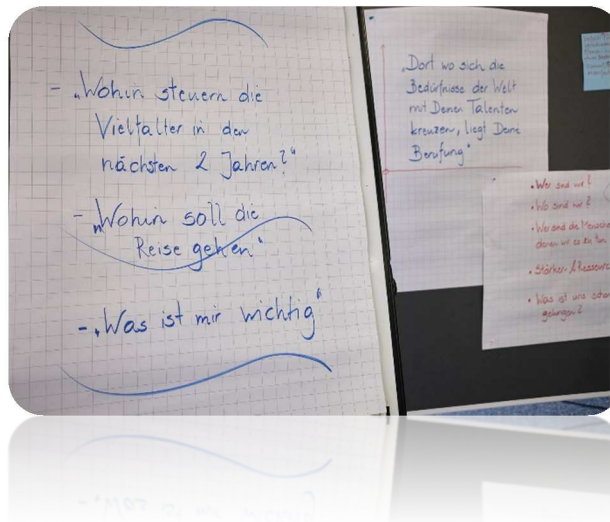 - „Wohin steuern die
Vielfalter in den
nächsten 2 Jahren?“
- „Wohin soll die
Reise gehen“
- „Was ist mir wichtig“
„Dort wo sich die
Bedürfnisse der Welt
mit Deinen Talenten
kreuzen, liegt Deine
Berufung“
• Wer sind wir?
• Wo sind wir?
• Wer sind die Mensche
denen wir es zu tun
• Stärken & Ressourc
• Was ist uns schon
gelungen?